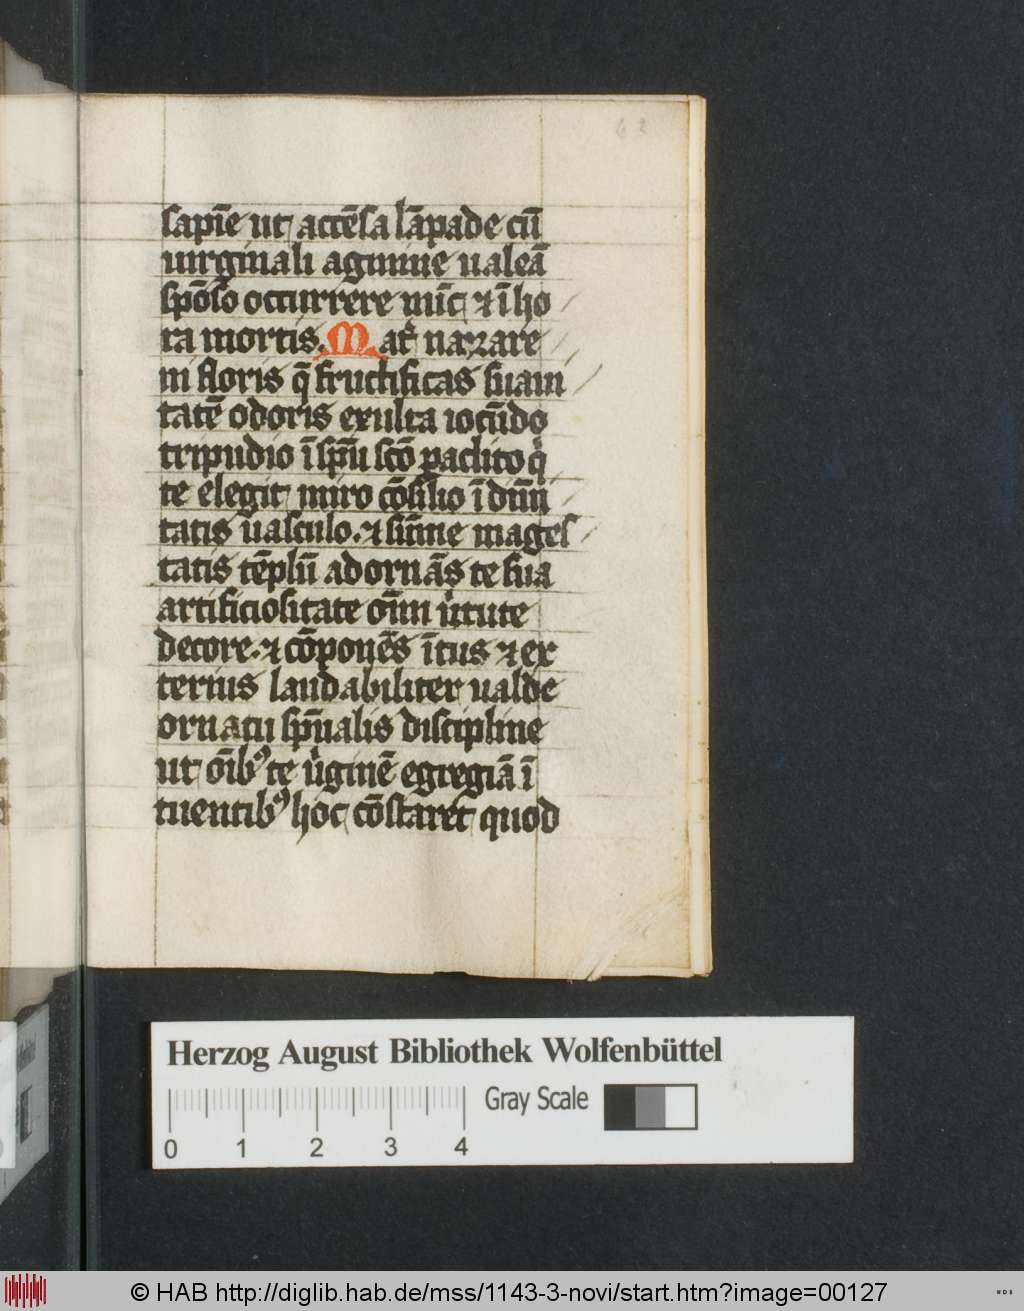 62
sapīe ut accēsa lāpade cū
uirginali agmine ualeā
spōso occurrere nūc et ī ho
ra mortis. Mat᷑ nazare
ni floris q̄ fructificas suaui
tatē odoris exulta iocūdo
tripudio ī sp̄u sc̄o paclito qͥ
te elegit miro cōsilio ī diuī
tatis uasculo. et sūme mages
tatis tēplū adornās te sua
artificiositate oīm uͥtute
decore. et cōponēs ītus et ex
terius laudabiliter ualde
ornatu sp̄ualis discipline
ut oīb⁹ te uͥginē egregiā ī
tuentib⁹ hoc cōstaret quod
Herzog August Bibliothek Wolfenbüttel
Gray Scale
0 1 2 3 4
© HAB http://diglib.hab.de/mss/1143-3-novi/start.htm?image=00127